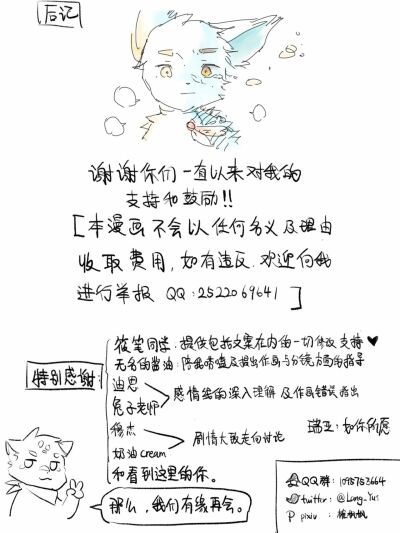 后记
谢谢你们一直以来对我的
支持和鼓励!!
[本漫画不会以任何名义及理由
收取费用,如有违反.欢迎向我
进行举报 QQ:2522069641]
特别感谢
筱笔同学:提供包括文案在内的一切修改支持♥
无名的酱油:陪我唠嗑及提出作画与分镜方面的指导
迪思
兔子老师
感情线的深入理解及作画错误指出
穆杰
奶油cream
剧情大致走向讨论
瑞亚:如你所愿
和看到这里的你。
那么,我们有缘再会。
QQ群:1095763664
twitter:@Long_Yu1
pixiv: